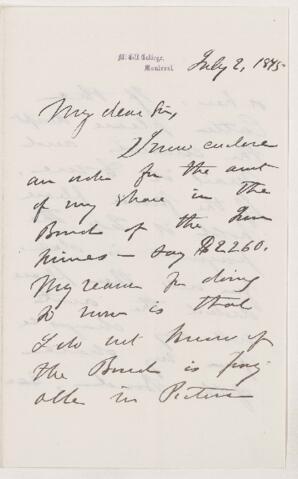 McGill College,
Montreal.
July 2, 1875
My dear Sir,
I now enclose
an order for the amt
of my share in the
Bond of the
mines — say $2260.
My reason for doing
so now is that
I do not know if
the Bond is pay
able in Pictou